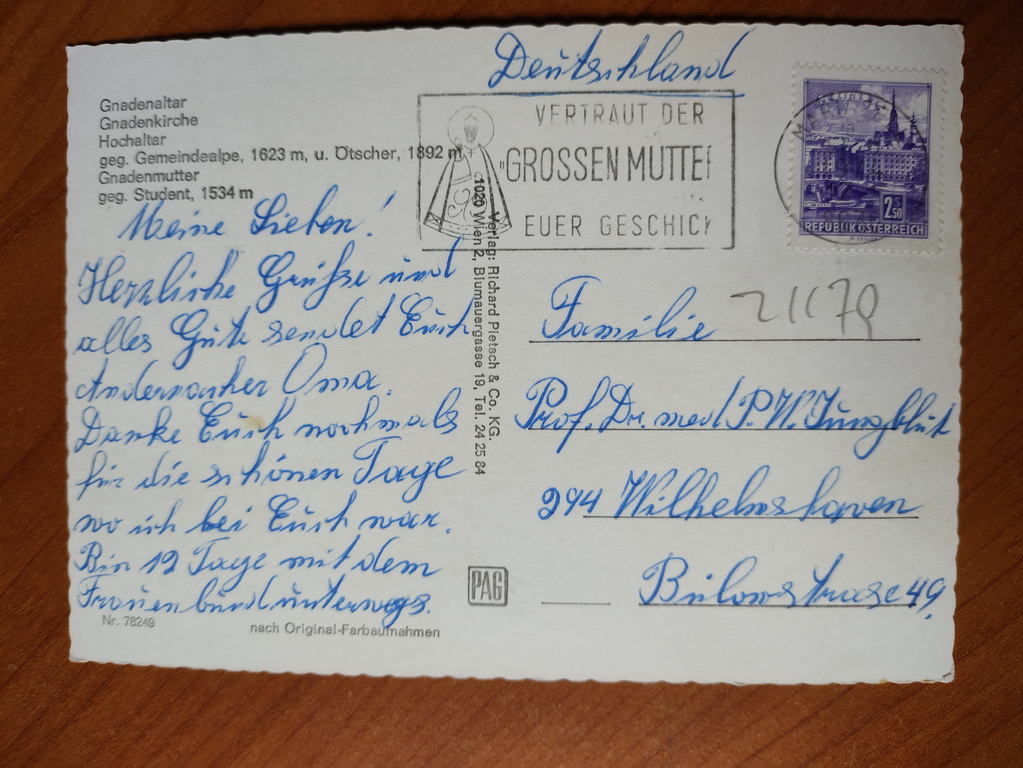 Deutschland
Gnadenaltar
Gnadenkirche
Hochaltar
geg. Gemeindealpe, 1623 m, u. Ötscher, 1892 m
Gnadenmutter
geg. Student, 1534 m
VERTRAUT DER
"GROSSEN MUTTER
EUER GESCHICK
2 S 50
REPUBLIK ÖSTERREICH
Meine Lieben!
Herzliche Grüße und
alles Gute sendet Euch
Andernacher Oma.
Danke Euch nochmals
für die schönen Tage
wo ich bei Euch war.
Bin 12 Tage mit dem
Frauenbund unterwegs.
Verlag: Richard Pietsch & Co. KG.
1020 Wien 2, Blumauergasse 19, Tel. 24 25 84
Familie
Prof. Dr. med. P. W. Jungblut
294 Wilhelmshaven
Bülowstrasse 49,
PAG
Nr. 78249
nach Original-Farbaufnahmen